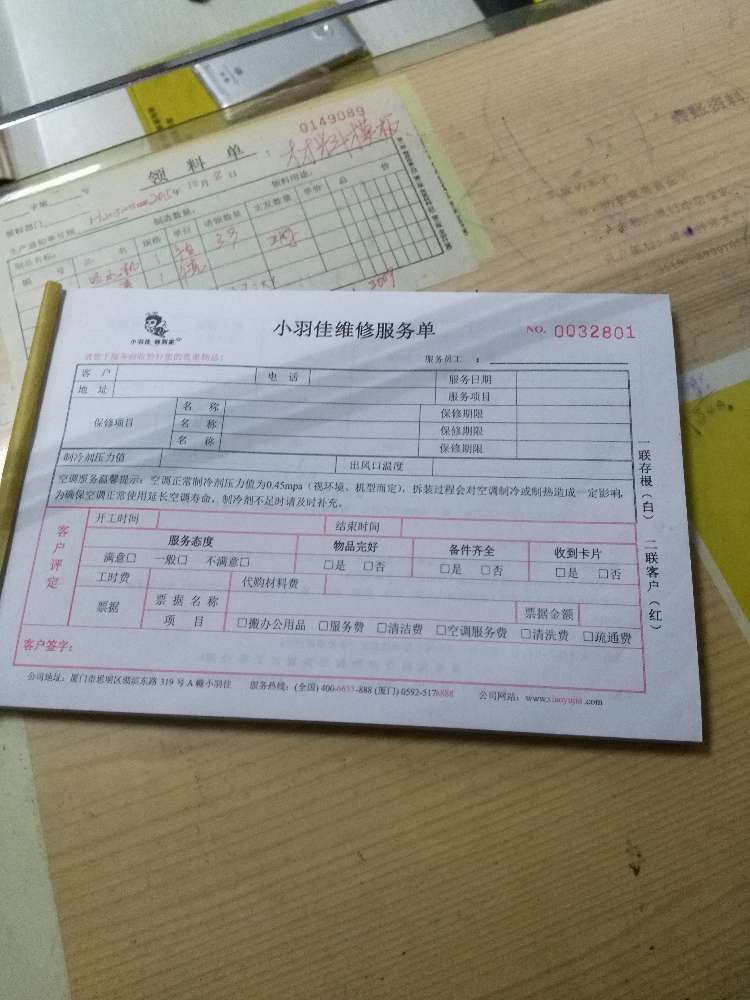 0149089
领料单
2015年10月8日
领料部门
制造数量:
领料用途:
生产通知单号码
制品名称:
编号 品名 规格 单位 请领数量 实发数量 单价 总价
小羽佳 修到家
小羽佳维修服务单
NO. 0032801
服务员工:
客户 电话 服务日期
地址 服务项目
保修项目 名称 保修期限
名称 保修期限
名称 保修期限
制冷剂压力值 出风口温度
空调服务温馨提示:空调正常制冷剂压力值为0.45mpa(视环境、机型而定),拆装过程会对空调制冷或制热造成一定影响,
为确保空调正常使用延长空调寿命,制冷剂不足时请及时补充。
客户评定
开工时间 结束时间
服务态度 物品完好 备件齐全 收到卡片
满意□ 一般□ 不满意□ □是 □否 □是 □否 □是 □否
工时费 代购材料费
票据 票据名称 票据金额
项目 □搬办公用品 □服务费 □清洁费 □空调服务费 □清洗费 □疏通费
客户签字:
公司地址:厦门市思明区湖滨东路319号A幢小羽佳 服务热线:(全国)400-6655-888 (厦门)0592-5178888 公司网站:www.xiaoyujia.com
一联存根(白) 二联客户(红)